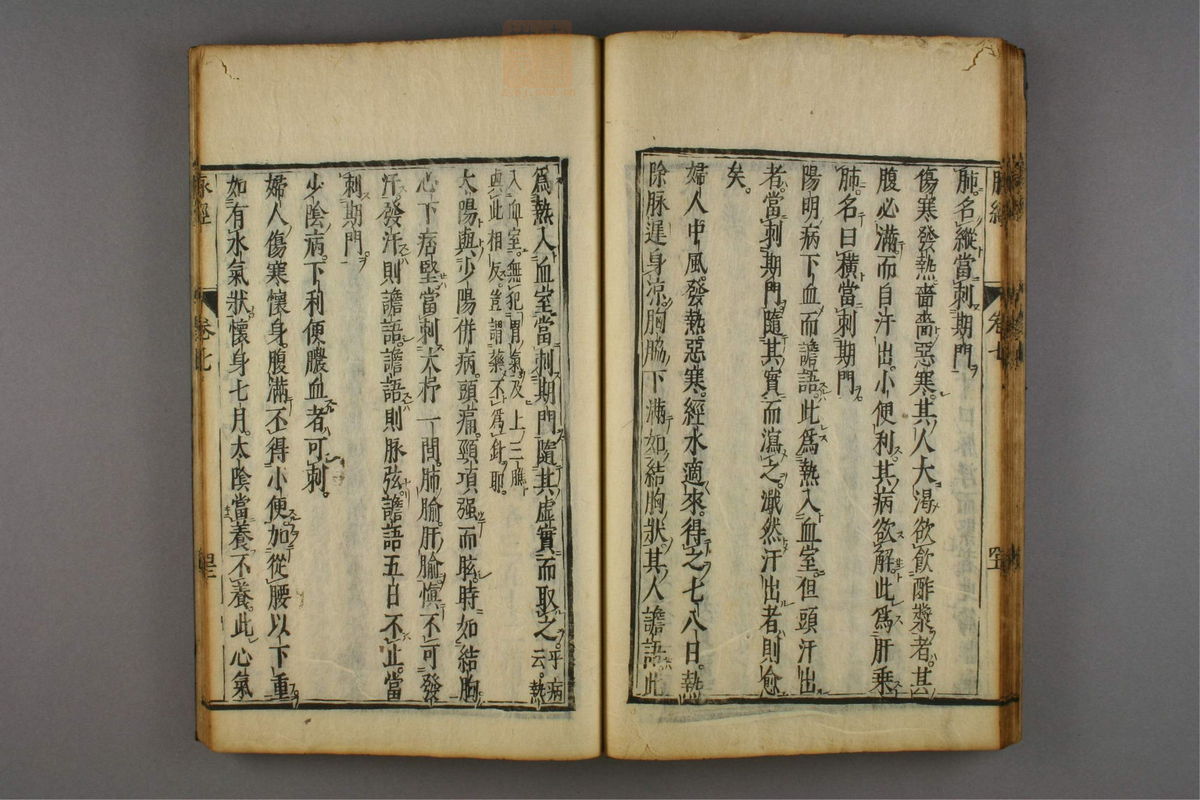 肺名縱當刺期門
傷寒發熱嗇嗇惡寒其人大渴欲飮酢漿者其
腹必滿而自汗出小便利其病欲解此爲肝乘
肺名曰橫當刺期門
陽明病下血而譫語此爲熱入血室但頭汗出
者當刺期門隨其實而瀉之濈然汗出者則愈
矣
婦人中風發熱惡寒經水適來得之七八日熱
除脉遲身涼胸脇下滿如結胸狀其人譫語此
爲熱入血室當刺期門隨其虛實而取之平病云熱
入血室無犯胃氣及上三膲
與此相反豈謂藥不爲針耶
太陽與少陽併病頭痛頸項强而眩時如結胸
心下痞堅當刺大杼一間肺腧肝腧愼不可發
汗發汗則譫語譫語則脉弦譫語五日不止當
刺期門
少陰病下利便膿血者可刺
婦人傷寒懷身腹滿不得小便加從腰以下重
如有水氣狀懷身七月太陰當養不養此心氣
脉經 卷七